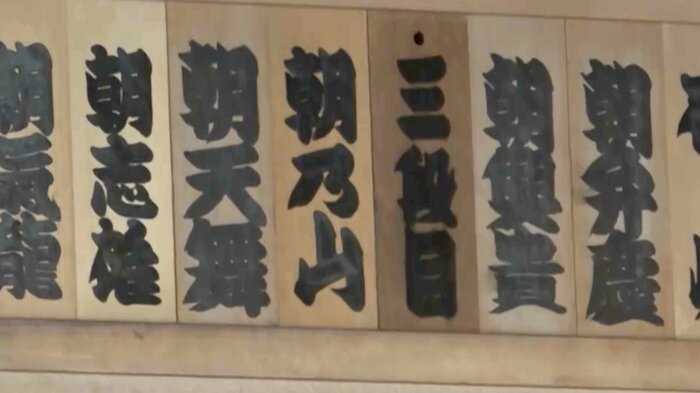 朝弁慶
朝興貴
三段目
朝乃山
朝天舞
朝志雄
朝氣龍